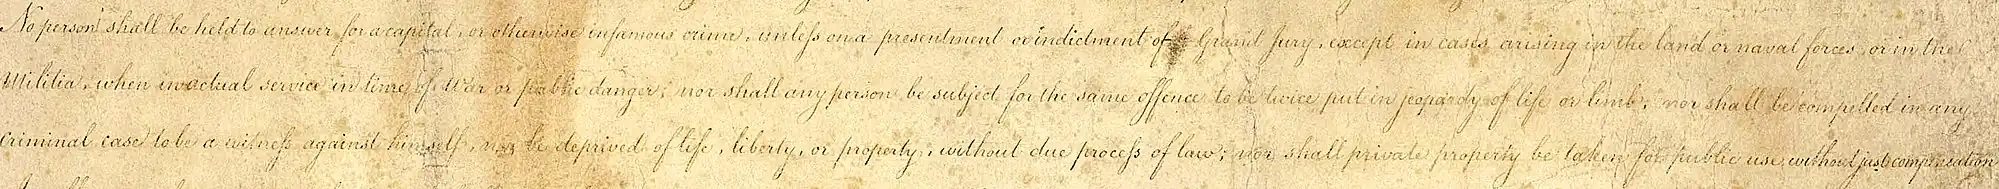 No person shall be held to answer for a capital, or otherwise infamous crime, unless on a presentment or indictment of a Grand Jury, except in cases arising in the land or naval forces, or in the
Militia, when in actual service in time of War or public danger; nor shall any person be subject for the same offence to be twice put in jeopardy of life or limb; nor shall be compelled in any
criminal case to be a witness against himself, nor be deprived of life, liberty, or property, without due process of law; nor shall private property be taken for public use, without just compensation